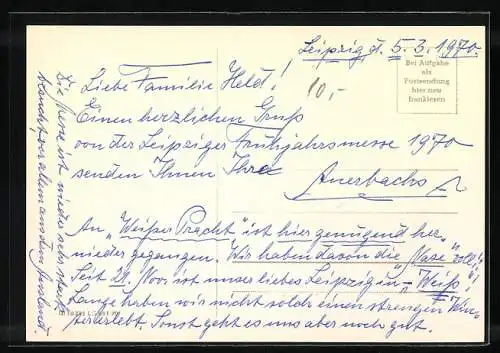 Leipzig, d. 5.3.1970.
Bei Aufgabe
als
Postsendung
hier neu
frankieren
10,-
Liebe Familie Held!
Einen herzlichen Gruß
von der Leipziger Frühjahrsmesse 1970
senden Ihnen Ihre
Auerbachs
An "Weißer Pracht" ist hier genügend her-
nieder gegangen. Wir haben davon die "Nase" voll!
Seit 29. Nov. ist unser liebes Leipzig in - Weiß!
Lange haben wir nicht solch einen strengen Win-
ter erlebt. Sonst geht es uns aber noch gut.
Die Messe ist wieder sehr stark
besucht, vor allem aus dem Ausland